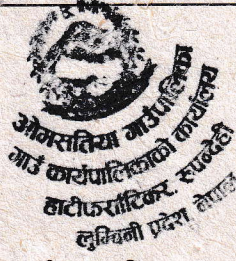 ओमसतिया गाउँपालिका
गाउँ कार्यपालिकाको कार्यालय
हाटीफर्साटिकर, रुपन्देही
लुम्बिनी प्रदेश, नेपाल